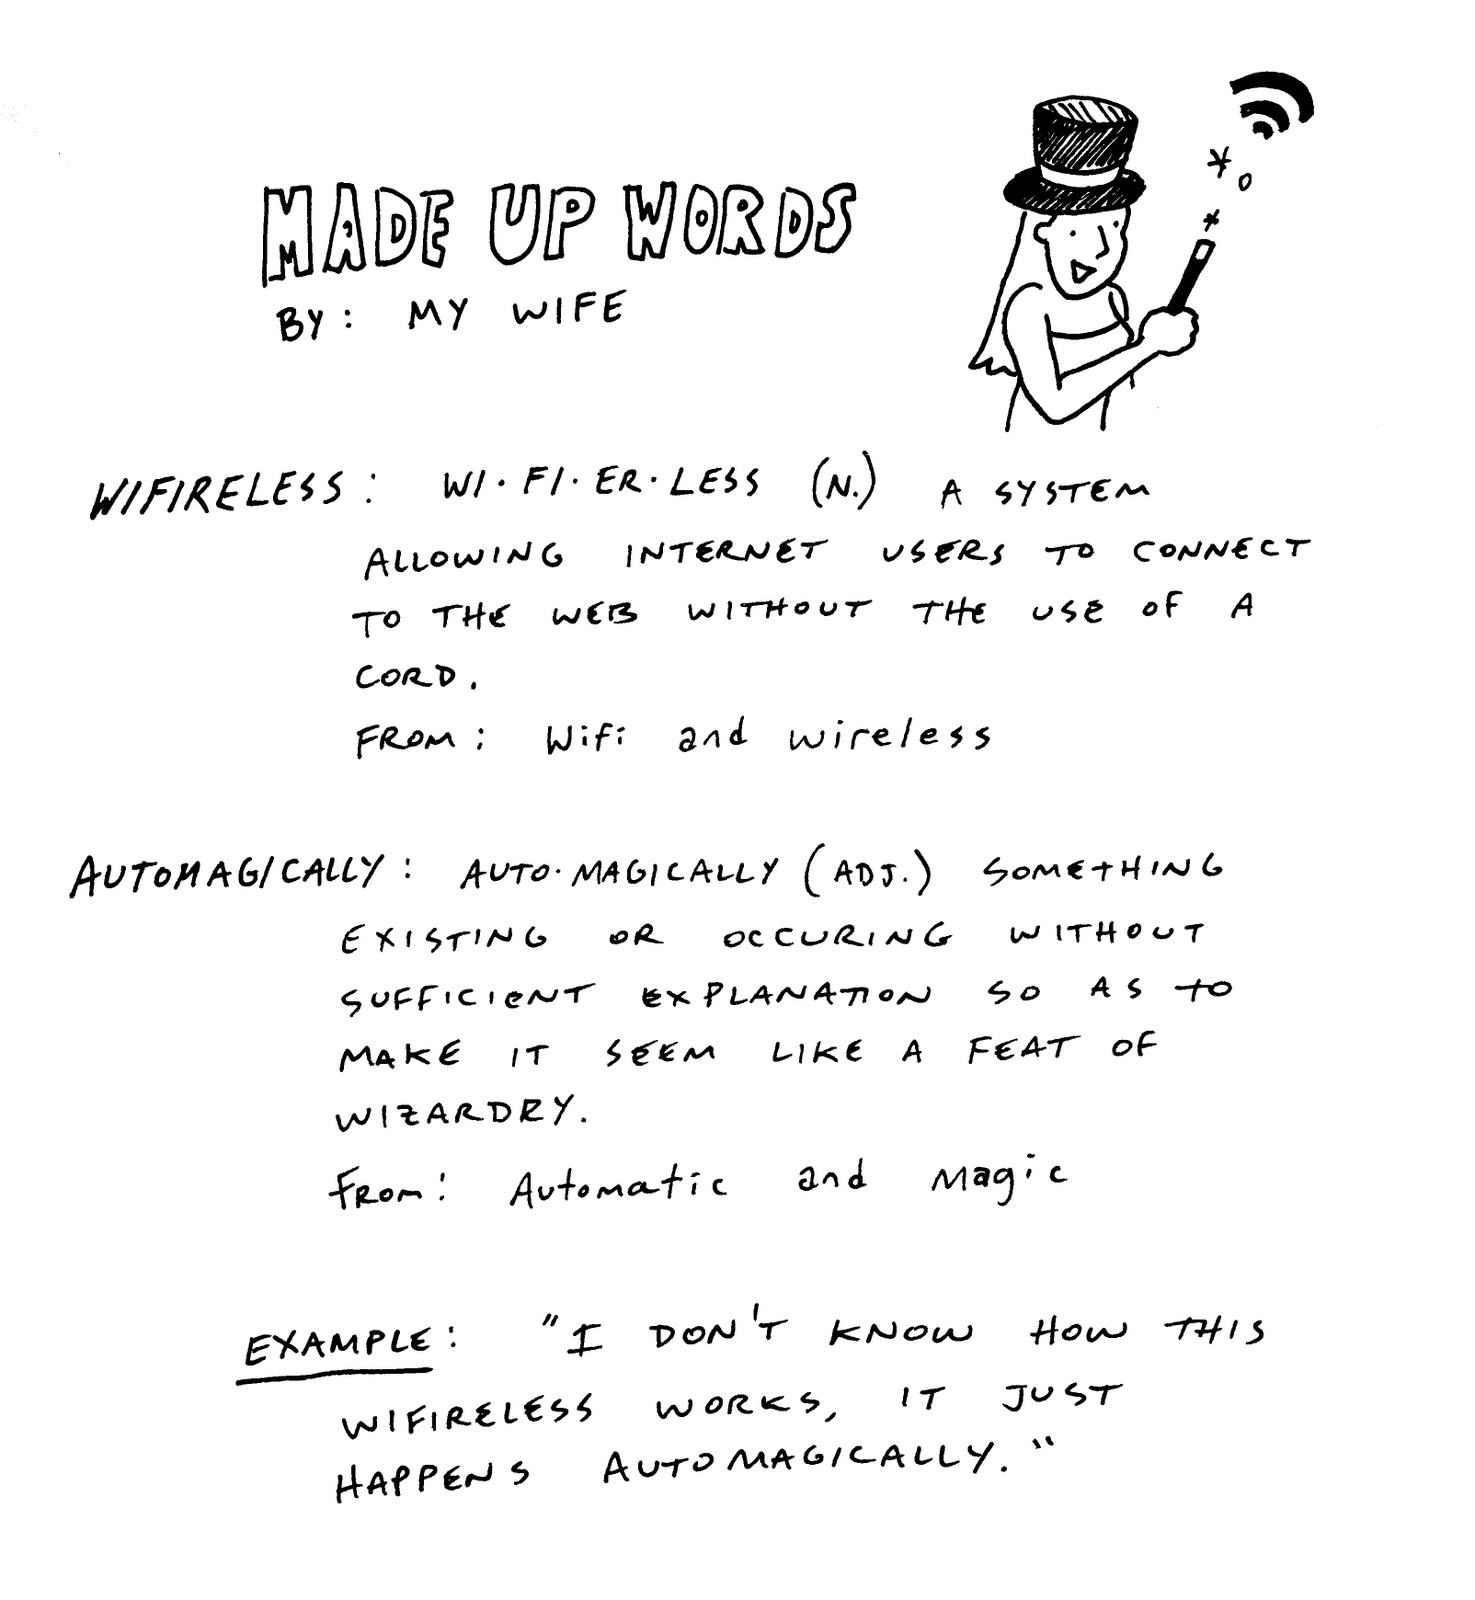 MADE UP WORDS
BY: MY WIFE
WIFIRELESS: WI·FI·ER·LESS (N.) A SYSTEM
ALLOWING INTERNET USERS TO CONNECT
TO THE WEB WITHOUT THE USE OF A
CORD.
FROM: Wifi and wireless
AUTOMAGICALLY: AUTO·MAGICALLY (ADJ.) SOMETHING
EXISTING OR OCCURING WITHOUT
SUFFICIENT EXPLANATION SO AS TO
MAKE IT SEEM LIKE A FEAT OF
WIZARDRY.
From: Automatic and Magic
EXAMPLE: "I DON'T KNOW HOW THIS
WIFIRELESS WORKS, IT JUST
HAPPENS AUTOMAGICALLY."